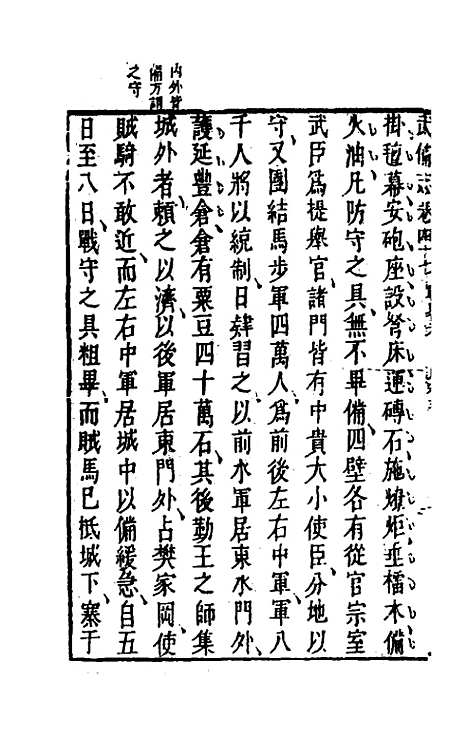 武備志卷四十七
掛氊幕安砲座設弩床運磚石施燎炬垂檑木備
火油凡防守之具無不畢備四壁各有從官宗室
武臣爲提舉官諸門皆有中貴大小使臣分地以
守又團結馬步軍四萬人爲前後左右中軍軍八
千人將以統制日肄習之以前水軍居東水門外
護延豐倉倉有粟豆四十萬石其後勤王之師集
城外者賴之以濟以後軍居東門外占樊家岡使
賊騎不敢近而左右中軍居城中以備緩急自五
日至八日戰守之具粗畢而賊馬已抵城下寨于
内外皆
備方謂
之守